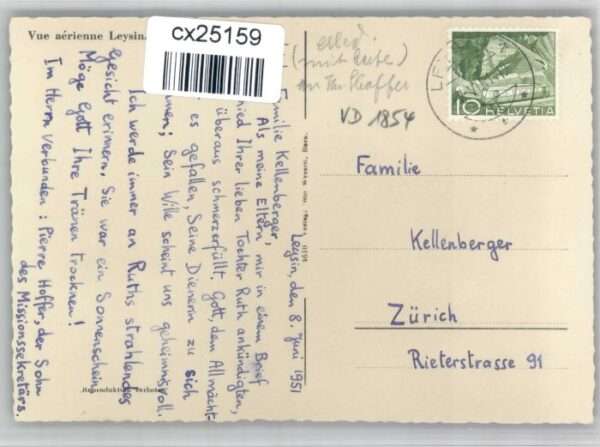 Vue aérienne Leysin.
cx25159
VD 1854
LEYSIN
10 HELVETIA
Leysin, den 8. Juni 1951
Familie Kellenberger,
Als meine Eltern mir in einem Brief
Ihrer lieben Tochter Ruth ankündigten,
überaus schmerzerfüllt. Gott, dem Allmächt-
es gefallen, Seine Dienerin zu sich
Sein Wille scheint uns geheimnisvoll.
Ich werde immer an Ruths strahlendes
Gesicht erinnern. Sie war ein Sonnenschein
Möge Gott Ihre Tränen trocknen!
Im Herrn verbunden: Pierre Hoffer, der Sohn
des Missionssekretärs.
Familie
Kellenberger
Zürich
Rieterstrasse 91